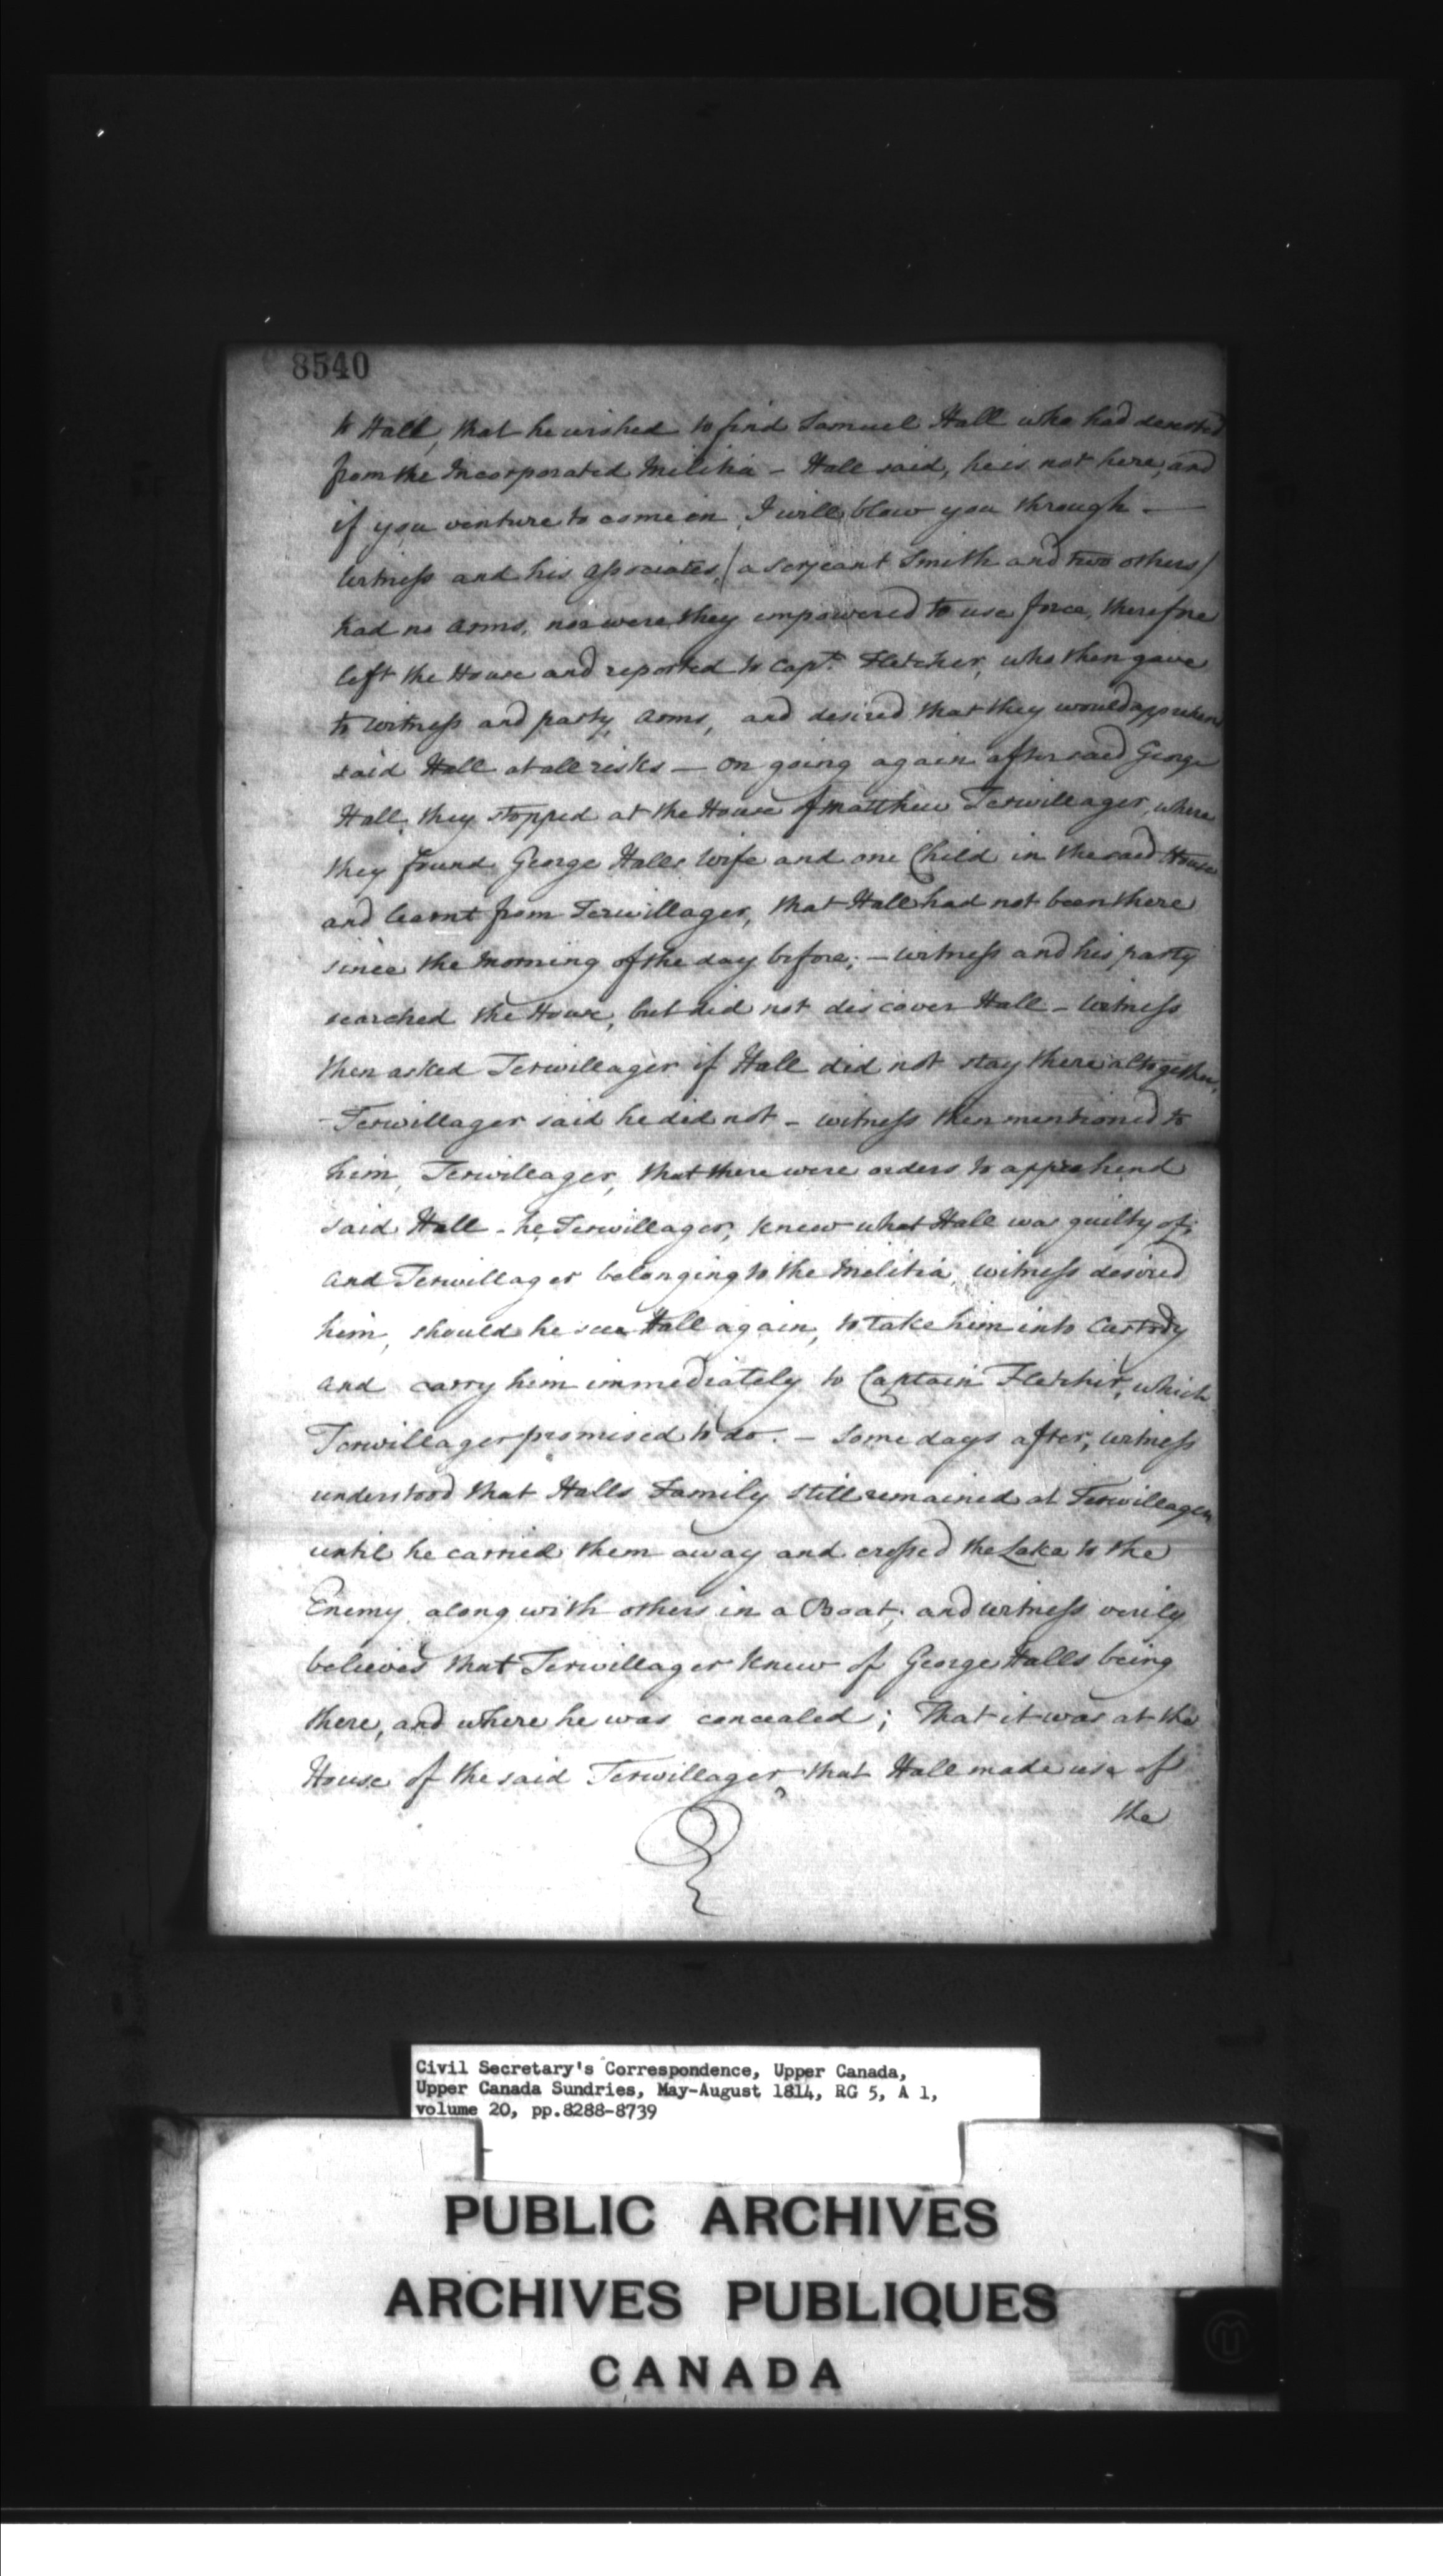 8540
to Hall, that he wished to find Samuel Hall who had deserted
from the Incorporated Militia - Hall said, he is not here, and
if you venture to come in, I will blow you through. —
Witness and his associates, (a Serjeant Smith and two others)
had no Arms, nor were they empowered to use force, therefore
left the House and reported to Capt. Fletcher, who then gave
to Witness and party, Arms, and desired that they would apprehend
said Hall at all risks — On going again after said George
Hall, they stopped at the House of Matthew Terwillager, where
they found George Halls Wife and one Child in the said House
and learnt from Terwillager, that Hall had not been there
since the Morning of the day before; — Witness and his party
searched the House, but did not discover Hall - Witness
then asked Terwillager if Hall did not stay there altogether,
- Terwillager said he did not - witness then mentioned to
him, Terwillager, that there were orders to apprehend
said Hall - he, Terwillager, knew what Hall was guilty of;
and Terwillager belonging to the Militia, witness desired
him, should he see Hall again, to take him into Custody
and carry him immediately to Captain Fletcher, which
Terwillager promised to do. - Some days after, witness
understood that Halls Family still remained at Terwillagers
until he carried them away and crossed the Lake to the
Enemy, along with others in a Boat; and witness verily
believes that Terwillager knew of George Halls being
there, and where he was concealed; That it was at the
House of the said Terwillager, that Hall made use of
the
Civil Secretary's Correspondence, Upper Canada,
Upper Canada Sundries, May-August 1814, RG 5, A 1,
volume 20, pp.8288-8739
PUBLIC ARCHIVES
ARCHIVES PUBLIQUES
CANADA